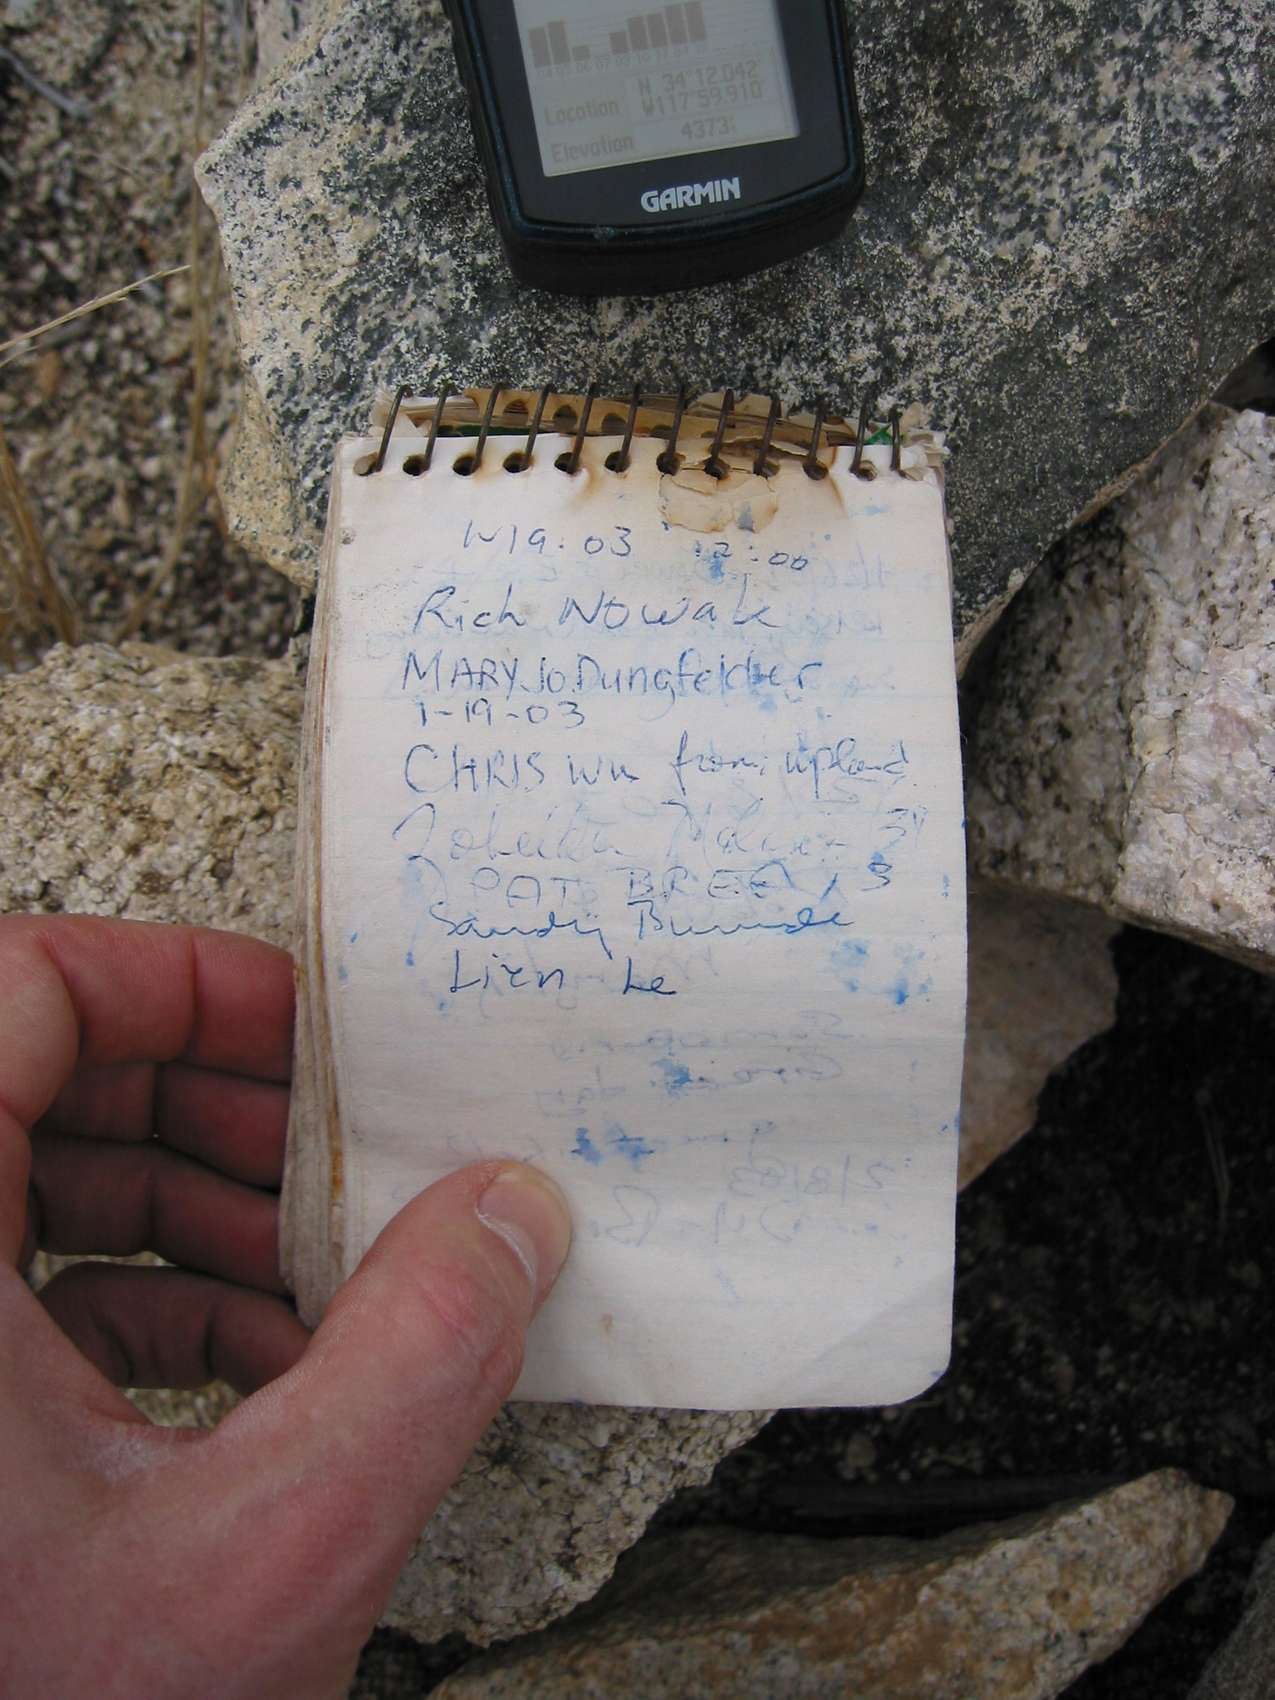 Location N 34°12.042
W117°59.910
Elevation 4373
GARMIN
1-19-03 12:00
Rich Nowak
MARY Jo Dungfelder
1-19-03
CHRIS Wu from upland
PAT BREE
Sandy
Lien Le